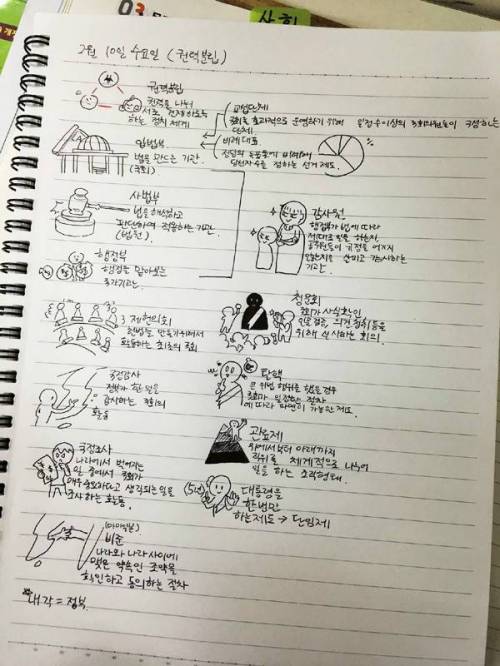 03
사회
2월 10일 수요일 (권력분립)
권력분립
권력을 나눠
서로 견제하도록
하는 정치 체계
교섭단체
국회를 효과적으로 운영하기 위해 일정수이상의 국회의원들이 구성하는
단체.
비례대표
정당의 득표율에 비례해
당선자 수를 정하는 선거 제도.
입법부
법을 만드는 기관.
(국회)
사법부
법을 해석하고
판단하여 적용하는 기관
(법원).
감사원
행정부가 법에 따라
제대로 일을 하는지,
공무원들이 규정을 어기지
않았는지 살피고 감사하는
기관.
행정부
행정을 맡아보는
국가기관.
제헌의회
헌법을 만들기 위해서
구성하는 최초의 국회
청문회
국회가 사실확인,
의견 청취 등을
위해 실시하는 회의.
국정감사
정부가 한 일을
감사하는 국회의
활동
탄핵
큰 위법 행위를 했을 경우
국회가 일정한 절차
에 따라 파면이 가능한 제도.
국정조사
나라에서 벌어지는
일 중에서 국회가
매우 중요하다고 생각되는 일을
조사 하는 활동.
관료제
위에서부터 아래까지
직위를 체계적으로 나누어
일을 하는 조직형태.
(5년)
대통령을
한 번만
하는제도 → 단임제
비준
나라와 나라 사이에
맺은 약속인 조약을
확인하고 동의하는 절차
*내각 = 정부.